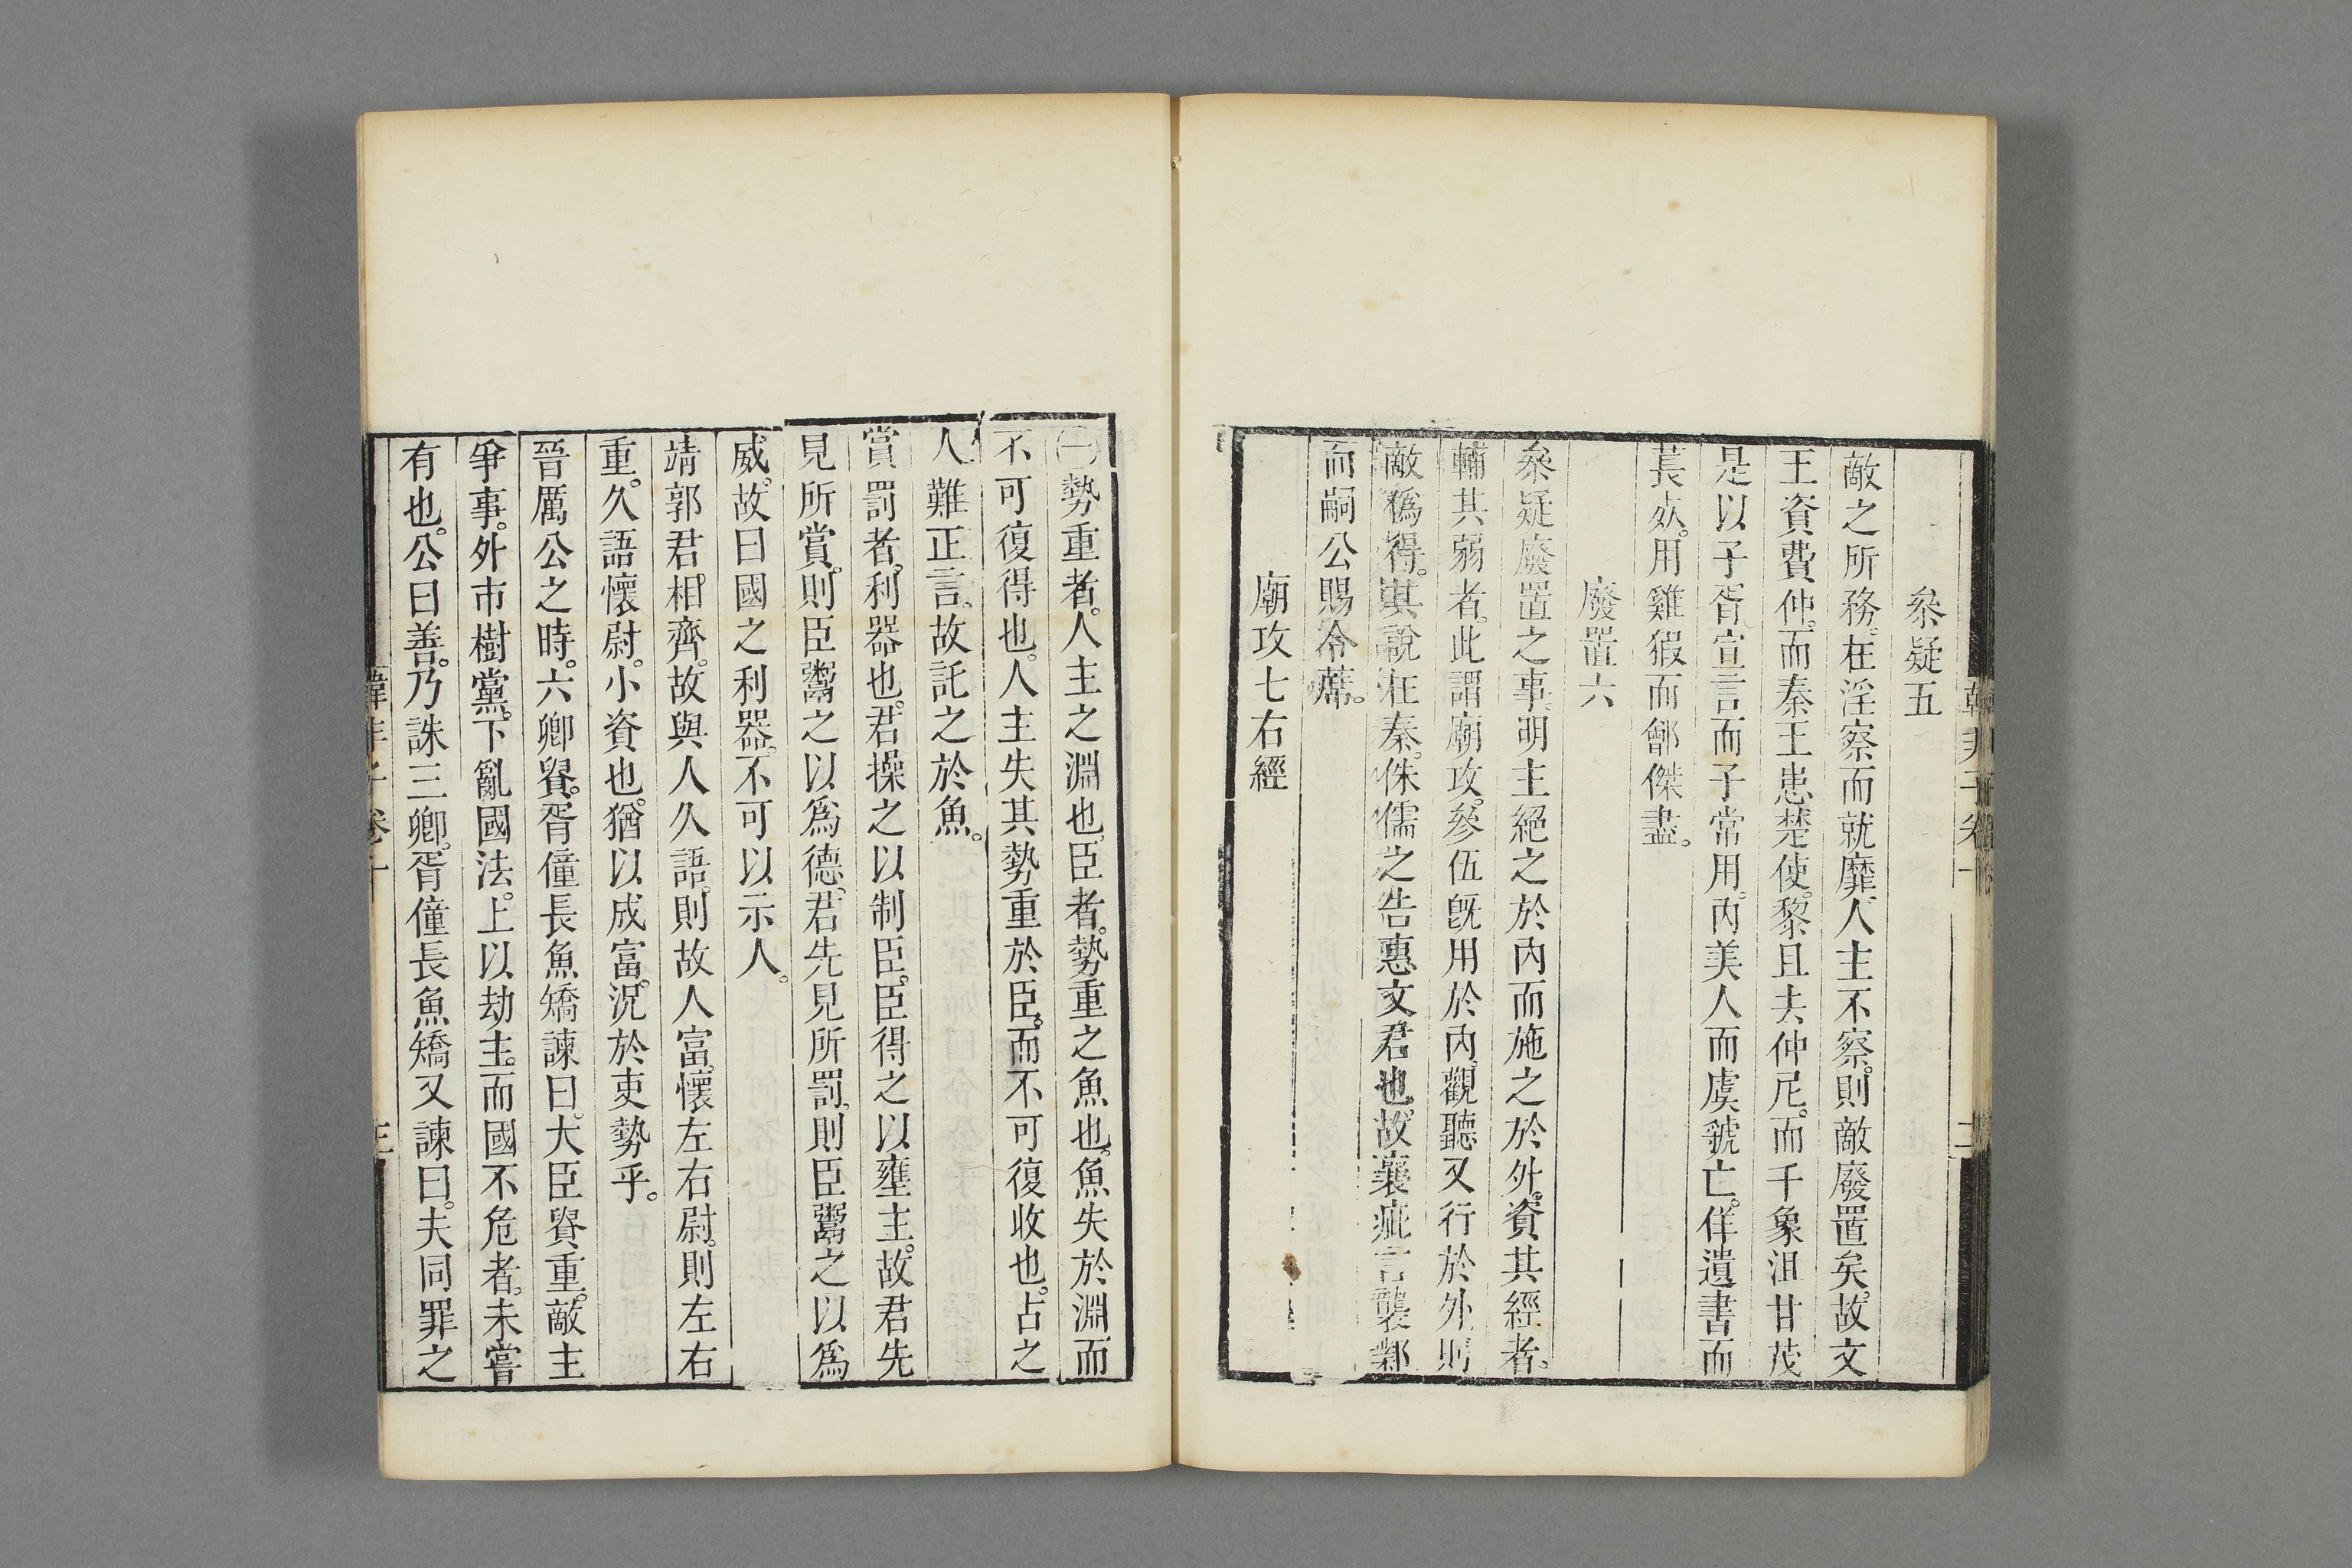 叅疑五
敵之所務。在淫察而就靡。人主不察。則敵廢置矣。故文
王資費仲。而秦王患楚使。黎且去仲尼。而千象沮甘茂
是以子胥宣言而子常用。內美人而虞虢亡。佯遺書而
萇㢤。用雞猳而鄶傑盡。
廢置六
叅疑廢置之事。明主絕之於內而施之於外。資其輕者。
輔其弱者。此謂廟攻。參伍旣用於內。觀聽又行於外。則
敵僞得。其說在秦。侏儒之告惠文君也。故襄疵言襲鄴
而嗣公賜令蓆。
廟攻七右經
韓非子卷十
二
㊀勢重者。人主之淵也。臣者。勢重之魚也。魚失於淵而
不可復得也。人主失其勢重於臣。而不可復收也。占之
人難正言。故託之於魚。
賞罰者。利器也。君操之以制臣。臣得之以壅主。故君先
見所賞。則臣鬻之以爲德。君先見所罰。則臣鬻之以爲
威。故曰國之利器。不可以示人。
靖郭君。相齊。故與人久語。則故人富。懷左右尉。則左右
重。久語懷尉。小資也。猶以成富。況於吏勢乎。
晉厲公之時。六卿貴。胥僮長魚矯諫曰。大臣貴重。敵主
爭事。外市樹黨。下亂國法。上以劫主。而國不危者。未嘗
有也。公曰善。乃誅三卿。胥僮長魚矯又諫曰。夫同罪之
韓非子卷十
三